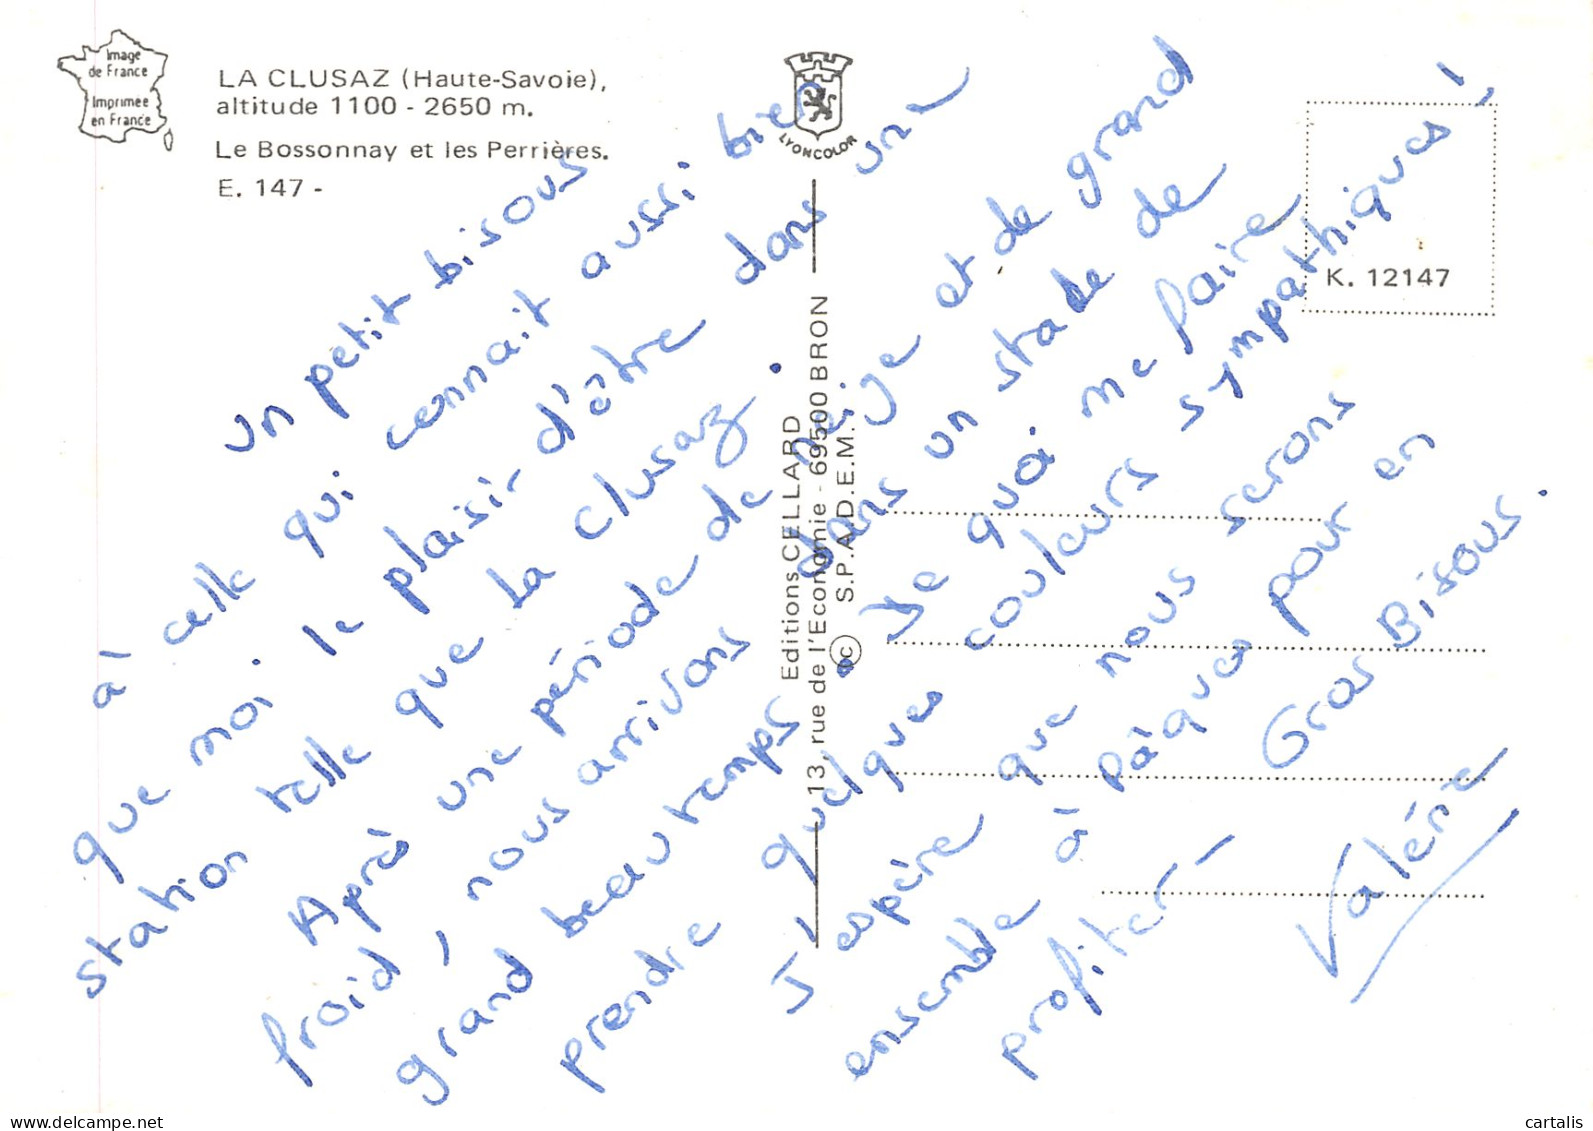 Image
de France
Imprimee
en France
LA CLUSAZ (Haute-Savoie),
altitude 1100 - 2650 m.
Le Bossonnay et les Perrières.
E. 147 -
LYONCOLOR
K. 12147
Editions CELLARD
13, rue de l'Economie - 69500 BRON
S.P.A.D.E.M.
C
un petit bisous
à celle qui connait aussi bien
que moi le plaisir d'être dans une
station telle que la Clusaz.
Après une période de neige et de grand
froid, nous arrivons dans un stade de
grand beau temps. De quoi me faire
prendre quelques couleurs sympathiques!
J'espère que nous serons
ensemble à Pâques pour en
profiter -
Gros Bisous.
Valérie
delcampe.net
cartalis